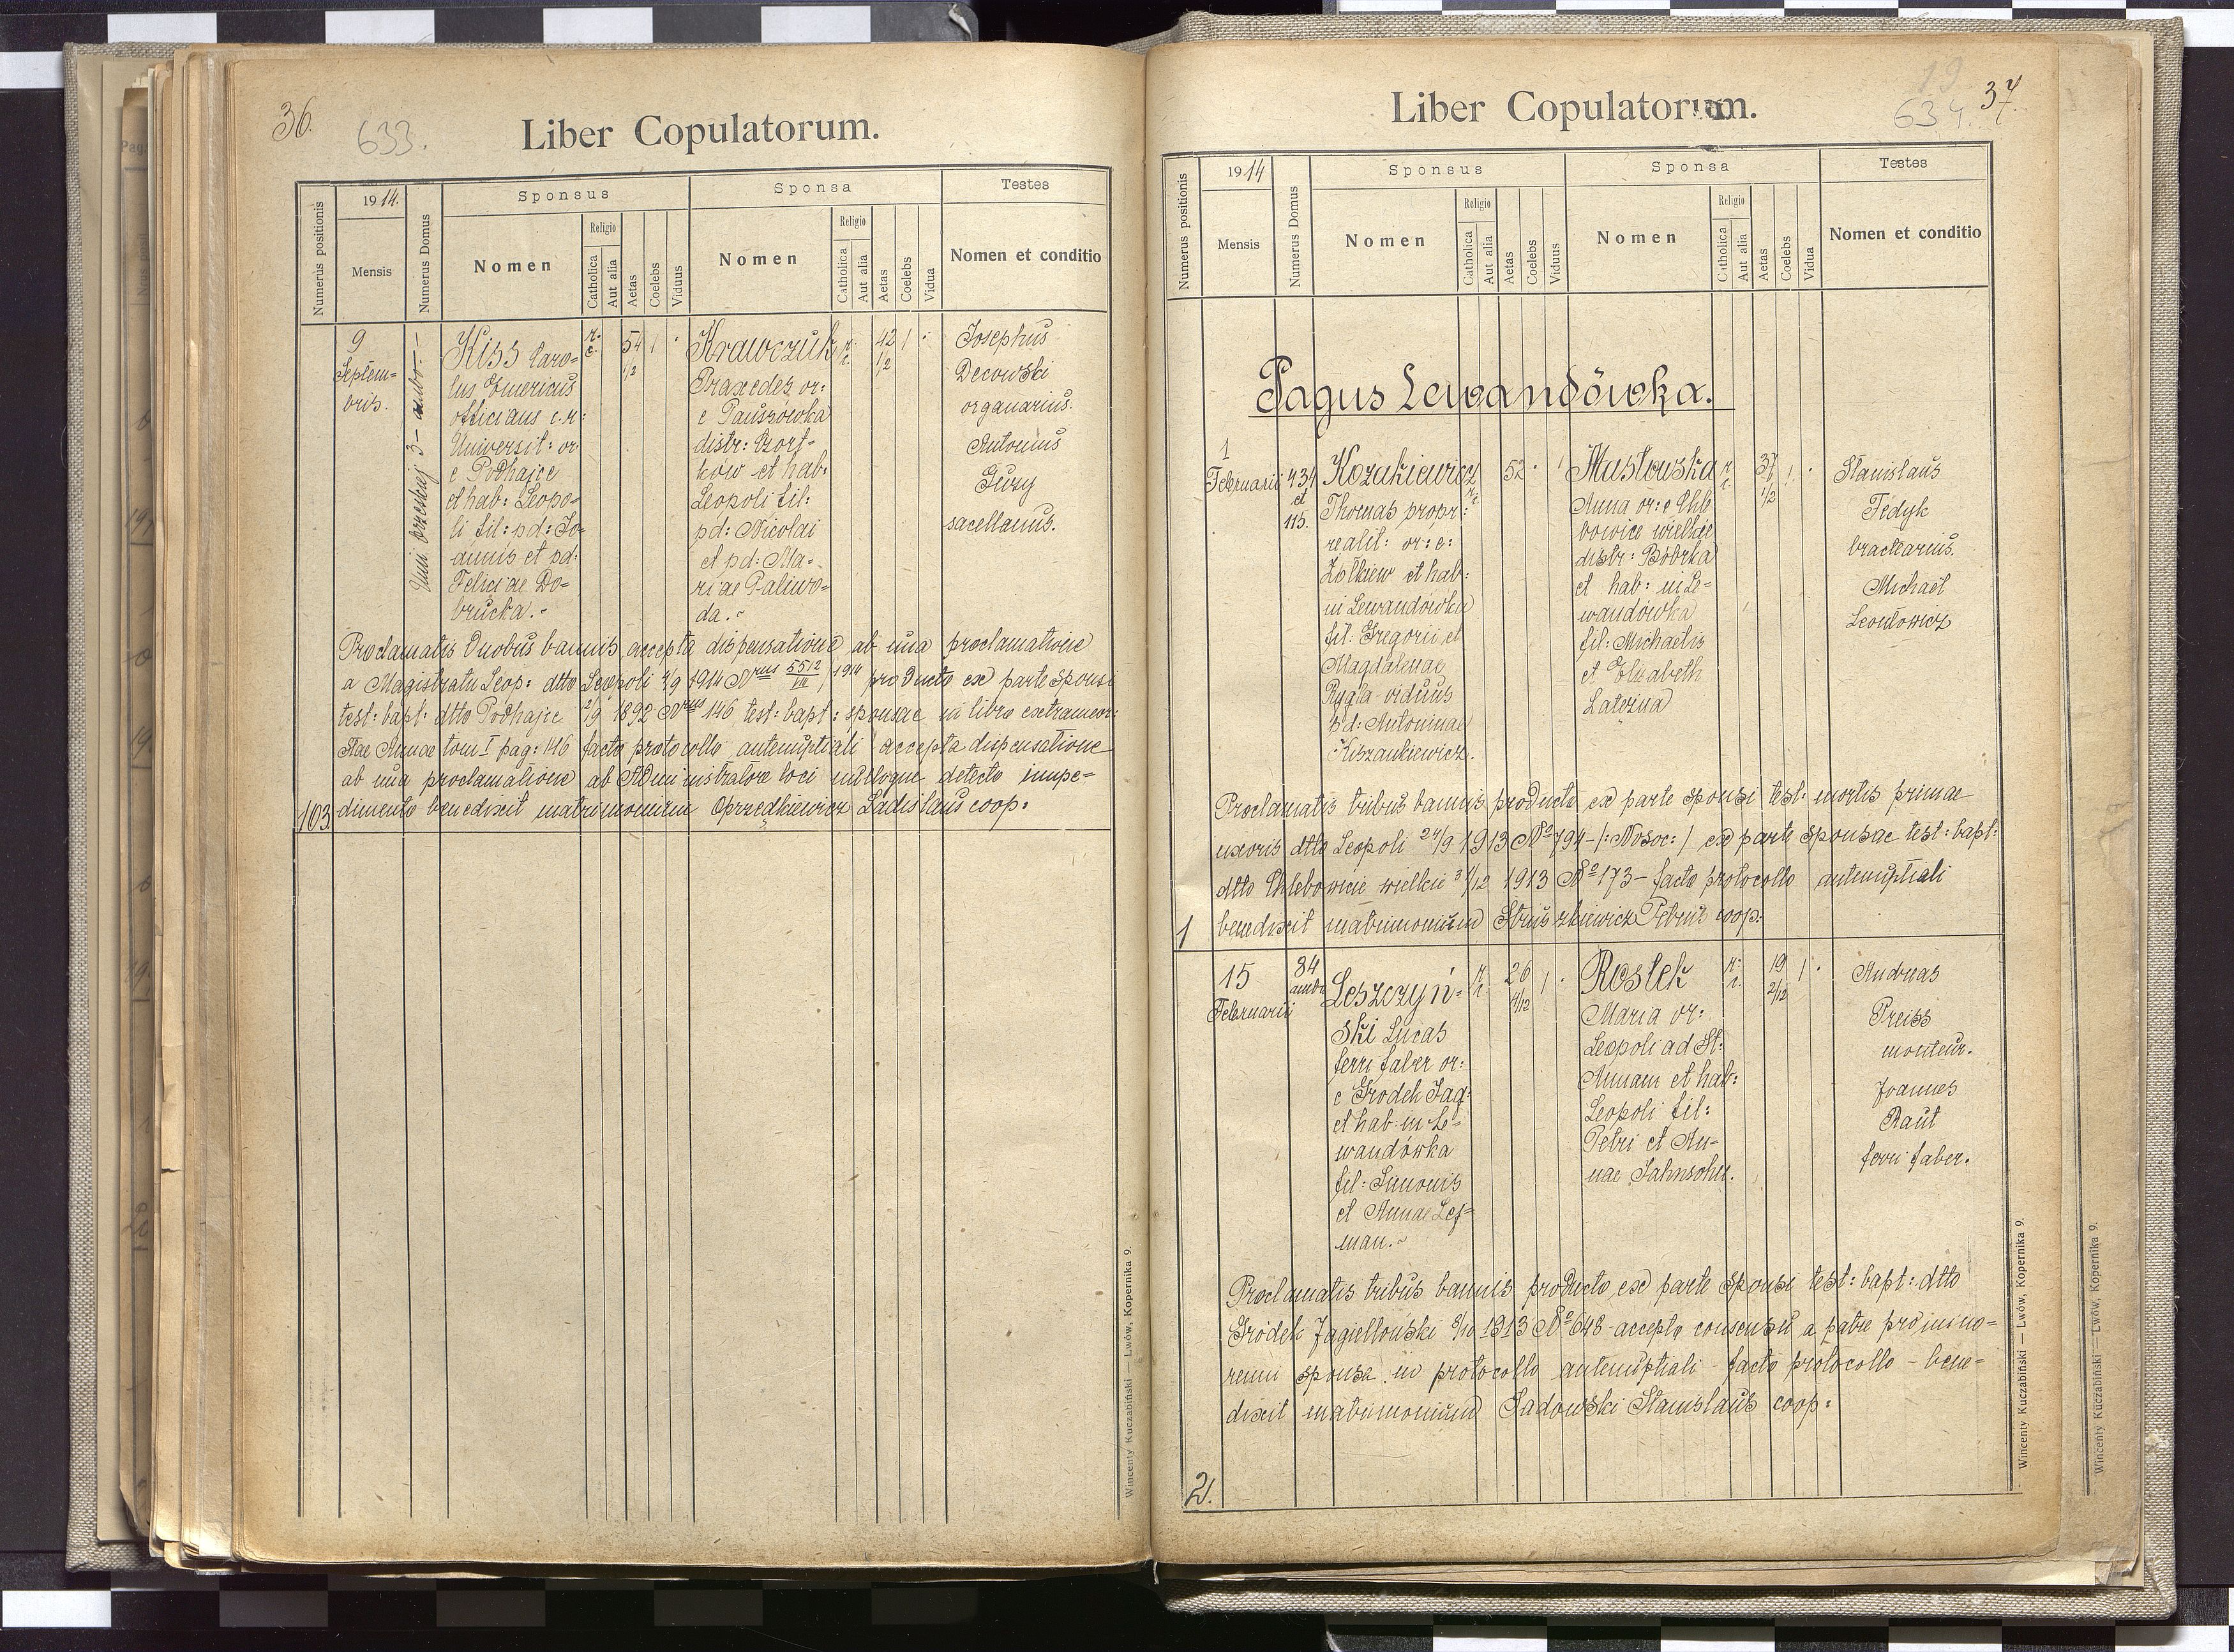 36.
633.
Liber Copulatorum.
Numerus positionis
1914.
Mensis
Numerus Domus
Sponsus
Nomen
Religio
Catholica
Aut alia
Aetas
Coelebs
Viduus
Sponsa
Nomen
Religio
Catholica
Aut alia
Aetas
Coelebs
Vidua
Testes
Nomen et conditio
9
Septem=
bris.
3 - ambo. -
Kiss Caro=
lus Emericus
officians c. r:
Universit: or:
e Podhajce
et hab: Leopo=
li fil: pd: Jo=
annis et pd:
Feliciae Do=
brucka. -
r. c.
54 1/2
1
Krawczuk
Praxedes or:
e Pauszówka
distr: Czort=
ków et hab:
Leopoli fil:
pd: Nicolai
et pd: Ma=
riae Paliwo=
da. -
r. c.
42 1/2
1
Josephus
Decowski
organarius.
Antonius
sacellanus.
Proclamatis duobus bannis accepta dispensatione ab una proclamatione
a Magistratu Leop: dtto Leopoli 4/9 1914 Nrus 5512/VII /1914 producto ex parte sponsi
test: bapt: dtto Podhajce 2/9 1892 Nrus 146 test: bapt: sponsae in libro extraneor:
Stae Annae tom I pag: 146 facto protocollo antenuptiali accepta dispensatione
ab una proclamatione ab Administratore loci nulloque detecto impe=
103. dimento benedixit matrimonium Oprzędkiewicz Ladislaus coop:
Wincenty Kuczabiński — Lwów, Kopernika 9.
19
634.
37.
Liber Copulatorum.
Numerus positionis
1914
Mensis
Numerus Domus
Sponsus
Nomen
Religio
Catholica
Aut alia
Aetas
Coelebs
Viduus
Sponsa
Nomen
Religio
Catholica
Aut alia
Aetas
Coelebs
Vidua
Testes
Nomen et conditio
Pagus Lewandówka.
1
Februarii
434
et
115.
Kozakiewicz
Thomas propr:
realit: or: e:
Żółkiew et hab:
in Lewandówka
fil: Gregorii et
Magdalenae
Rygla - viduus
pd: Antoninae
Kiszankiewicz.
r. c.
52
1
Masłowska
Anna or: e Chle
bowice wielkie
distr: Bóbrka
et hab: in Le=
wandówka
fil: Michaelis
et Elisabeth
Laterna
r. c.
37 1/2
1
Stanislaus
Fedyk
bractearius.
Michaël
Leontowicz
Proclamatis tribus bannis producto ex parte sponsi test: mortis primae
uxoris dtto Leopoli 24/9 1913 No 794 - /: Nosoc: / ex parte sponsae test: bapt:
dtto Chlebowicie wielkie 31/12 1913 No 173 - facto protocollo antenuptiali
1 benedixit matrimonium Struszkiewicz Petrus coop:
15
Februarii
84
ambo
Leszczyń=
ski Lucas
ferri faber or:
e Gródek Jag:
et hab: in Le=
wandówka
fil: Simonis
et Annae Lej=
man. -
r. c.
26 4/12
1
Rostek
Maria or:
Leopoli ad St:
Annam et hab:
Leopoli fil:
Petri et An=
nae Jahnsohn.
r. c.
19 2/12
1
Andreas
Preiss
monteur.
Joannes
Raut
ferri faber.
Proclamatis tribus bannis producto ex parte sponsi test: bapt: dtto
Gródek Jagielloński 8/10 1913 No 648 - accepto consensu a patre pro mino=
renni sponsa in protocollo antenuptiali - facto protocollo - bene=
dixit matrimonium Sadowski Stanislaus coop:
2.
Wincenty Kuczabiński — Lwów, Kopernika 9.
Wincenty Kuczabiński — Lwów, Kopernika 9.